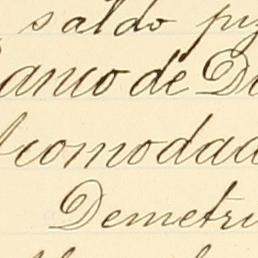 saldo
anco de D
comodad
Demetri